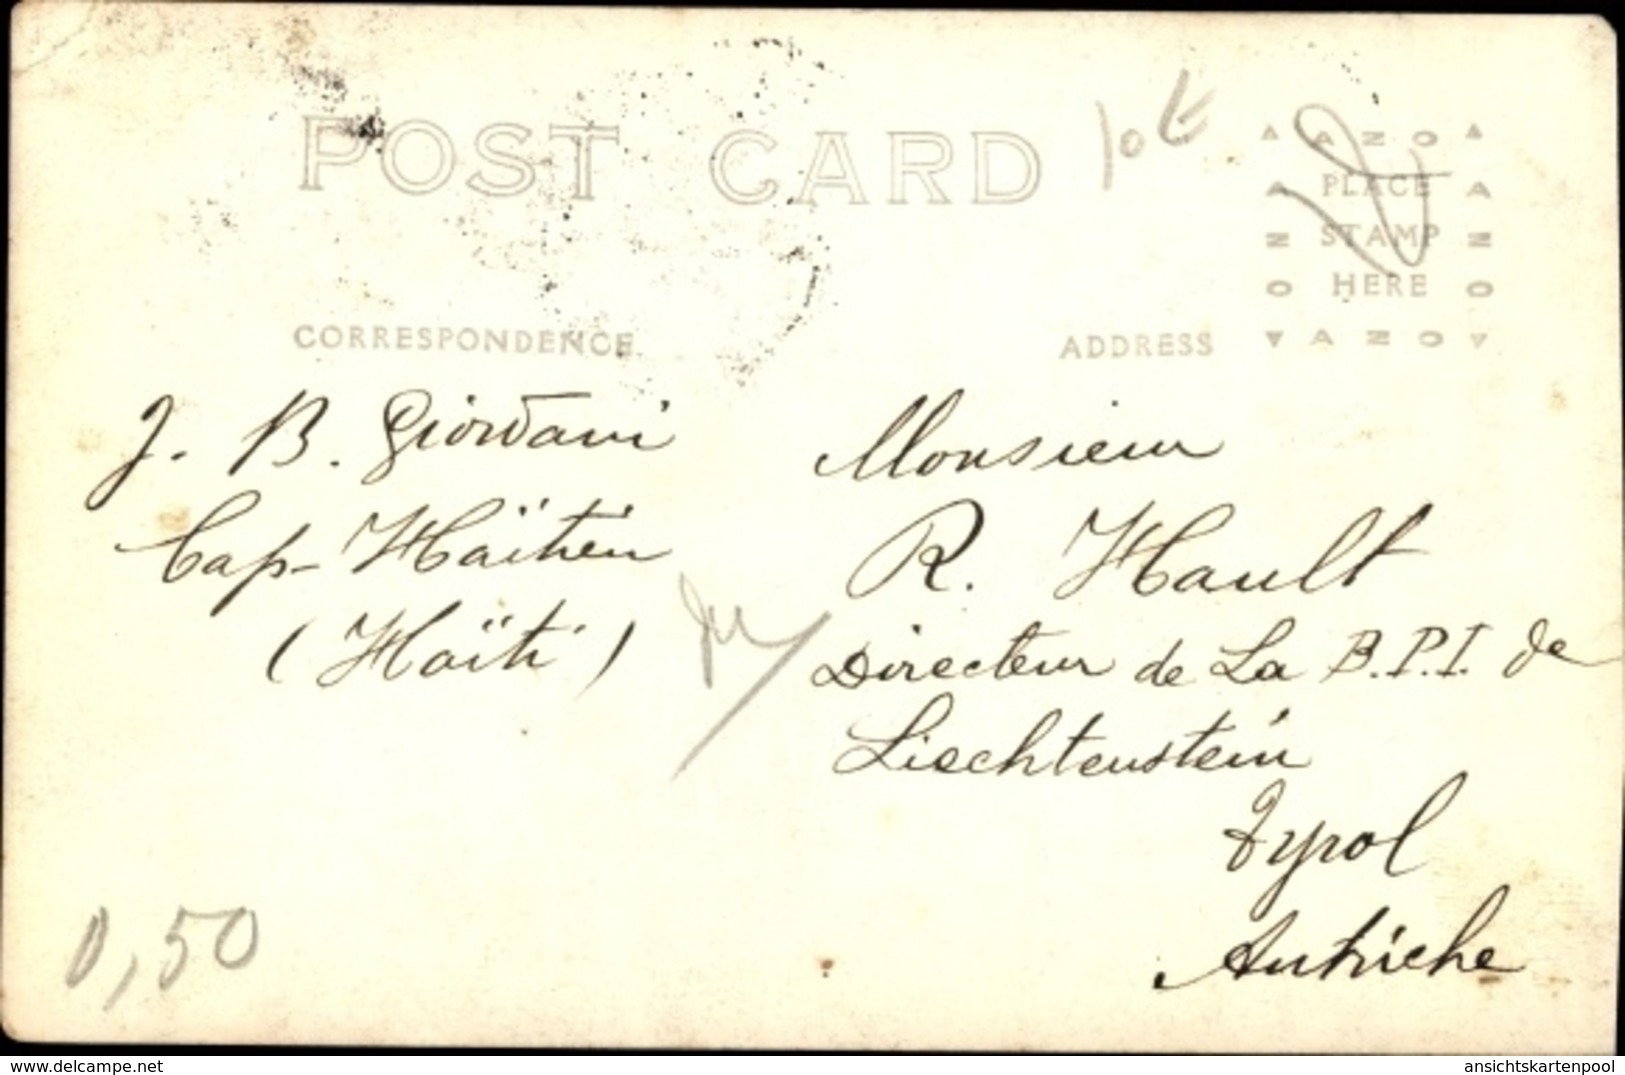 POST CARD
10 €
AZO
PLACE
STAMP
HERE
AZO
AZO
AZO
CORRESPONDENCE
ADDRESS
J. B. Giordani
Cap-Haïtien
(Haïti)
Monsieur
R. Hault
Directeur de La B.P.I. de
Liechtenstein
Tyrol
Autriche
0,50
www.delcampe.net
ansichtskartenpool